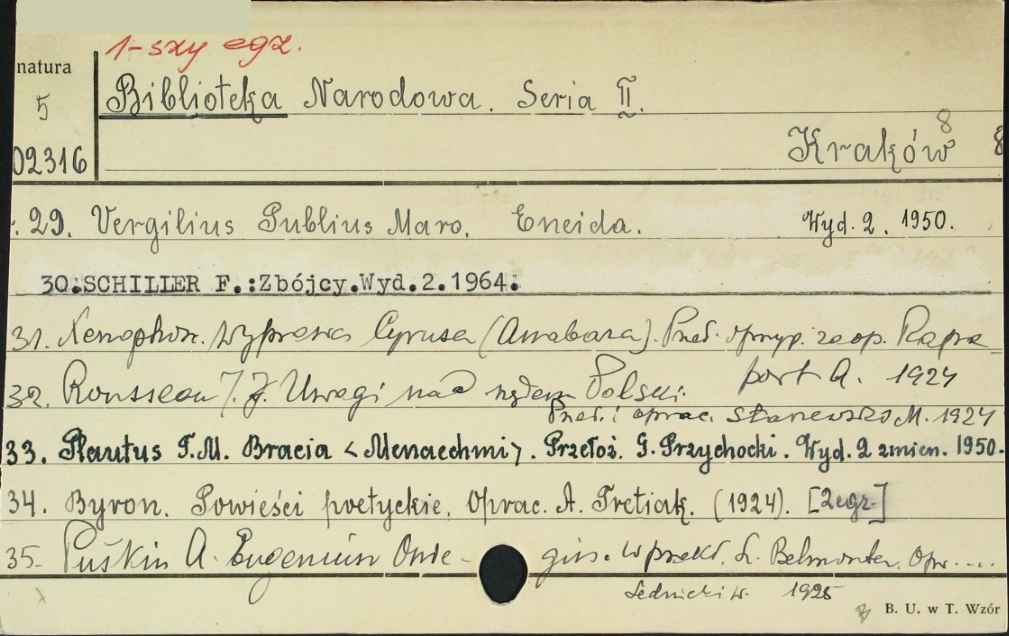 1-szy egz.
natura
5
Biblioteka Narodowa. Seria II.
02316
Kraków 8 8
29. Vergilius Publius Maro. Eneida. Wyd. 2. 1950.
30.SCHILLER F.:Zbójcy.Wyd.2.1964.
31. Xenophon. Wyprawa Cyrusa (Anabaza). Przeł. i przyp. zaop. Rapa-
port A. 1924
32. Rousseau J. J. Uwagi nad rządem Polski.
Przeł. i oprac. Staniewski M. 1924
33. Plautus T.M. Bracia <Menaechmi>. Przełoż. G. Przychocki. Wyd. 2 zmien. 1950.
34. Byron. Powieści poetyckie. Oprac. A. Tretiak. (1924). [2egz.]
35. Puškin A. Eugeniusz Onie- gin. W przekł. L. Belmonta. Opr....
Lednicki W. 1925
B. U. w T. Wzór